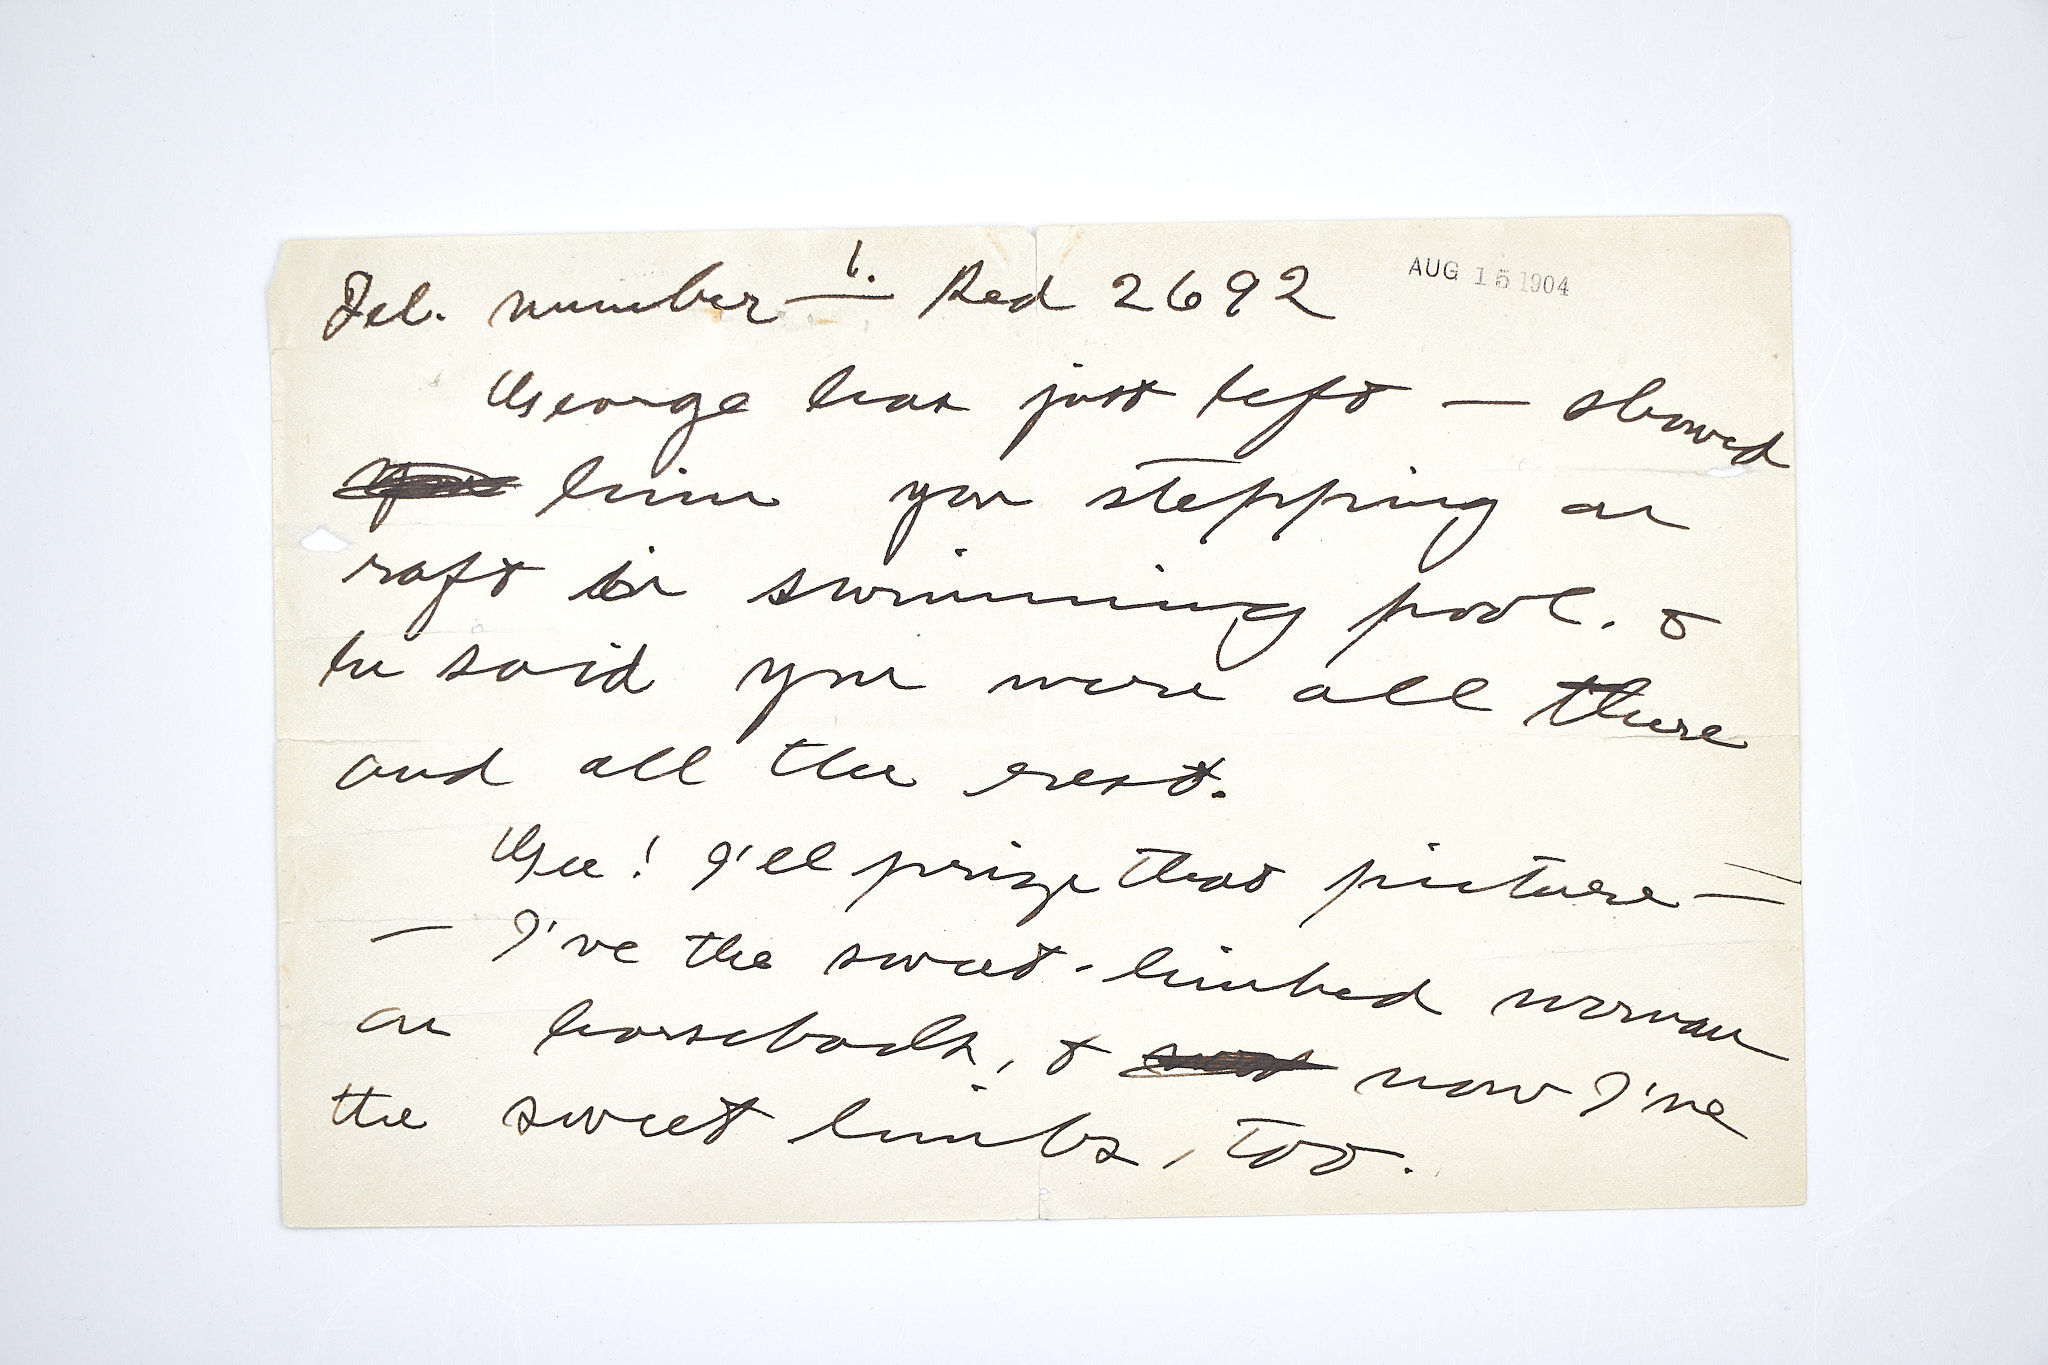 1.
Tel. number — Red 2692
AUG 15 1904
George has just left — showed
him you stepping on
raft in swimming pool. &
he said you were all there
and all the rest.
Gee! I'll prize that picture —
— I've the sweet-limbed woman
on horseback, & now I've
the sweet limbs, too.